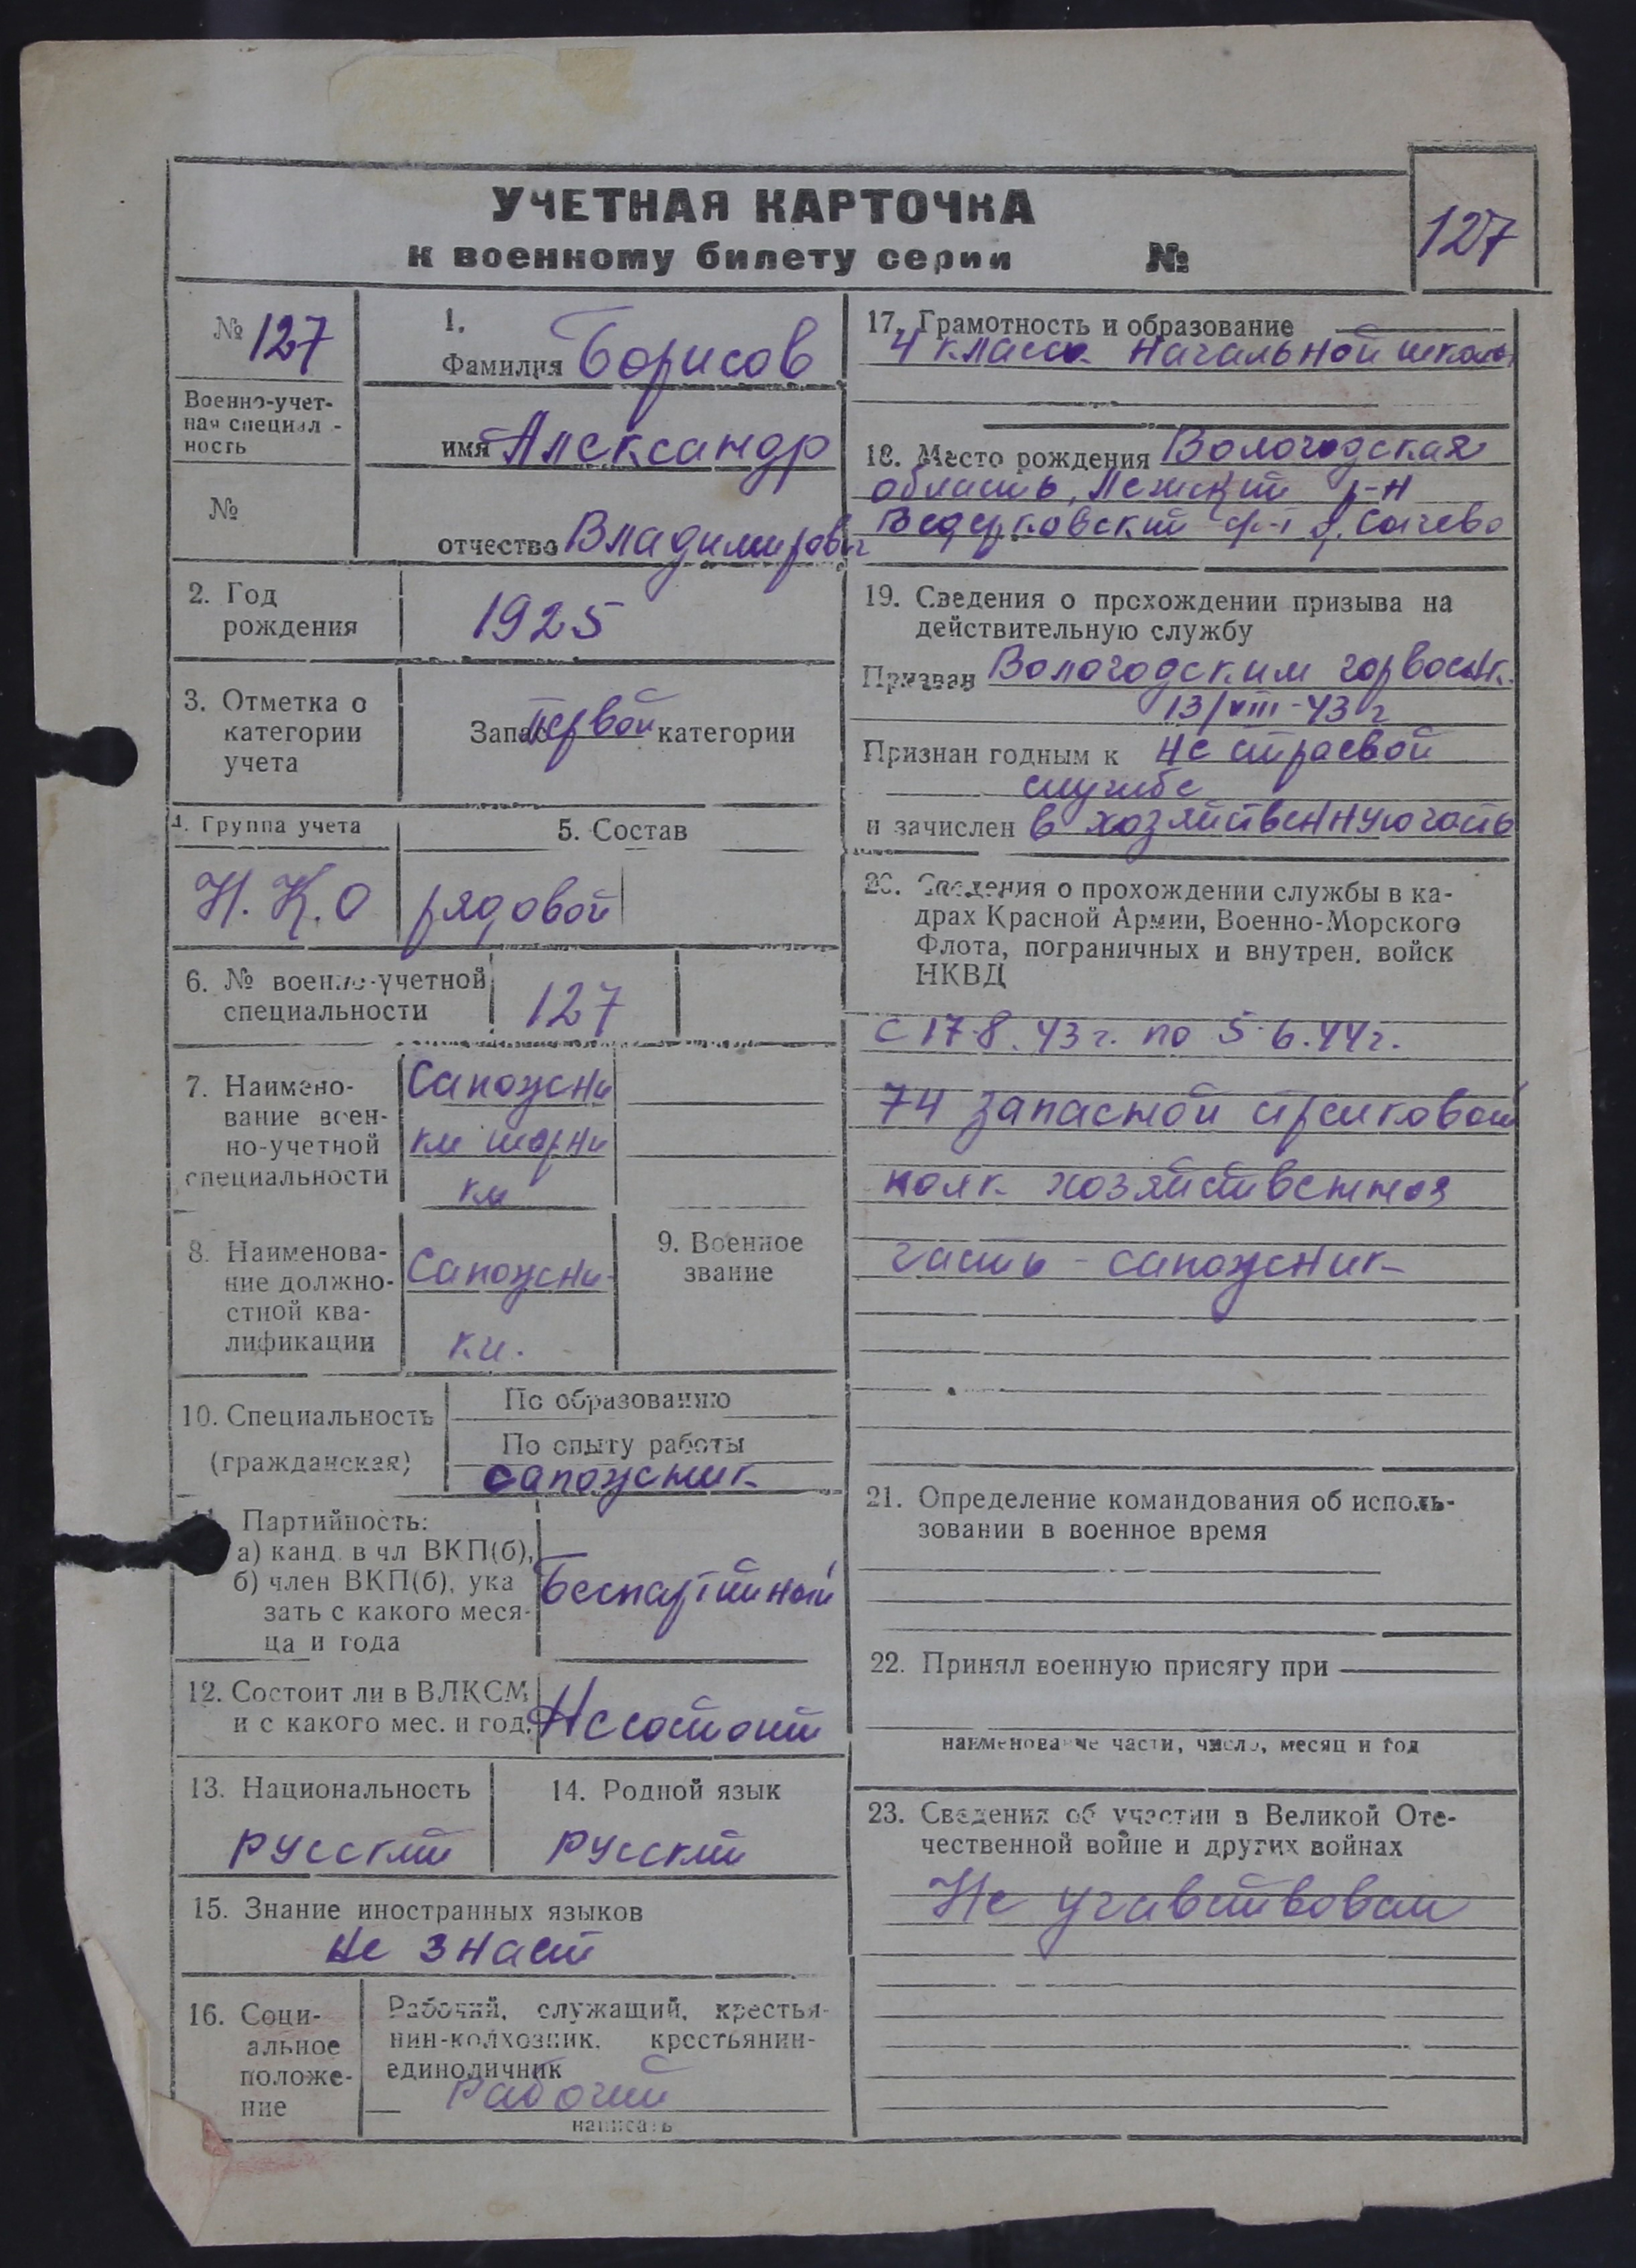 УЧЕТНАЯ КАРТОЧКА
к военному билету серии №
127
№ 127
Военно-учет-
ная специал-
ность
№
1.
Фамилия Борисов
имя Александр
отчество Владимирович
2. Год
рождения
1925
3. Отметка о
категории
учета
Запас первой категории
4. Группа учета
Н.К.О
5. Состав
рядовой
6. № военно-учетной
специальности
127
7. Наимено-
вание воен-
но-учетной
специальности
Сапожни
ки шорни
ки
8. Наименова-
ние должно-
стной ква-
лификации
Сапожни-
ки.
9. Военное
звание
10. Специальность
(гражданская)
По образованию
По опыту работы
сапожник
Партийность:
а) канд. в чл ВКП(б),
б) член ВКП(б), ука
зать с какого меся-
ца и года
Беспартийный
12. Состоит ли в ВЛКСМ
и с какого мес. и год.
Не состоит
13. Национальность
русский
14. Родной язык
русский
15. Знание иностранных языков
не знает
16. Соци-
альное
положе-
ние
Рабочий, служащий, крестья-
нин-колхозник, крестьянин-
единоличник
рабочий
написать
17. Грамотность и образование
4 класса начальной школы
18. Место рождения Вологодская
область, Лежский р-н
д. Сычево
19. Сведения о прохождении призыва на
действительную службу
Призван Вологодским горвоенк.
13/VIII-43 г
Признан годным к не строевой
службе
и зачислен в хозяйственную часть
20. Сведения о прохождении службы в ка-
драх Красной Армии, Военно-Морского
Флота, пограничных и внутрен. войск
НКВД
с 17-8.43 г. по 5-6.44 г.
74 запасной стрелковой
полк хозяйственная
часть - сапожник
21. Определение командования об исполь-
зовании в военное время
22. Принял военную присягу при
наименование части, число, месяц и год
23. Сведения об участии в Великой Оте-
чественной войне и других войнах
Не участвовал